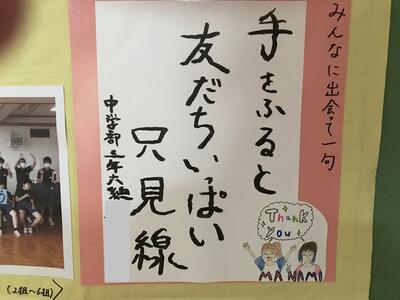 みんなに出会って一句
手をふると
友だちいっぱい
只見線
中学部2年六組
Thank
You
MANAMI
(2組~6組)